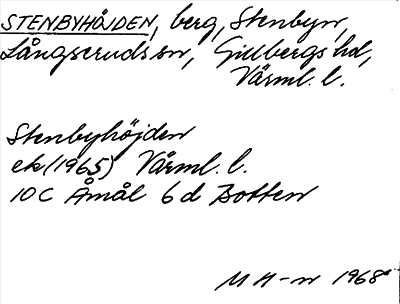 STENBYHÖJDEN, berg, Stenbyn,
Långseruds sn, Gillbergs hd,
Värml. l.
Stenbyhöjden
ek (1965) Värml. l.
10 C Åmål 6 d Botten
M H-n 1968